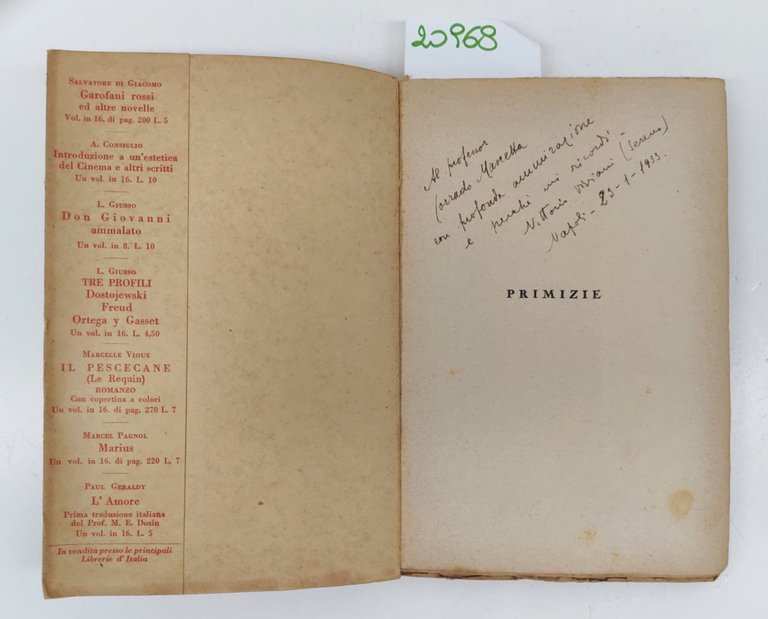 20968
SALVATORE DI GIACOMO
Garofani rossi
ed altre novelle
Vol. in 16. di pag. 200 L. 5
A. CONSIGLIO
Introduzione a un'estetica
del Cinema e altri scritti
Un vol. in 16. L. 10
L. GIUSSO
Don Giovanni
ammalato
Un vol. in 8. L. 10
L. GIUSSO
TRE PROFILI
Dostojewski
Freud
Ortega y Gasset
Un vol. in 16. L. 4,50
MARCELLE VIOUX
IL PESCECANE
(Le Requin)
ROMANZO
Con copertina a colori
Un vol. in 16. di pag. 270 L. 7
MARCEL PAGNOL
Marius
Un vol. in 16. di pag. 220 L. 7
PAUL GERALDY
L'Amore
Prima traduzione italiana
del Prof. M. E. Dozin
Un vol. in 16. L. 5
In vendita presso le principali
Librerie d'Italia
Al professor
Corrado Marsetta
con profonda ammirazione
e perchè mi ricordi -
Vittorio Viviani (Sereno)
Napoli - 23-1-1933.
PRIMIZIE